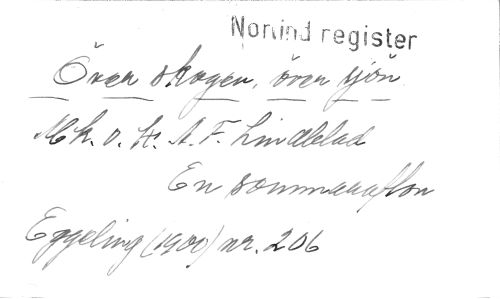 Norlind register
Över skogen, över sjön
Mk. o. H. A. F. Lindblad
En sommarafton
Eggeling (1900) nr. 206